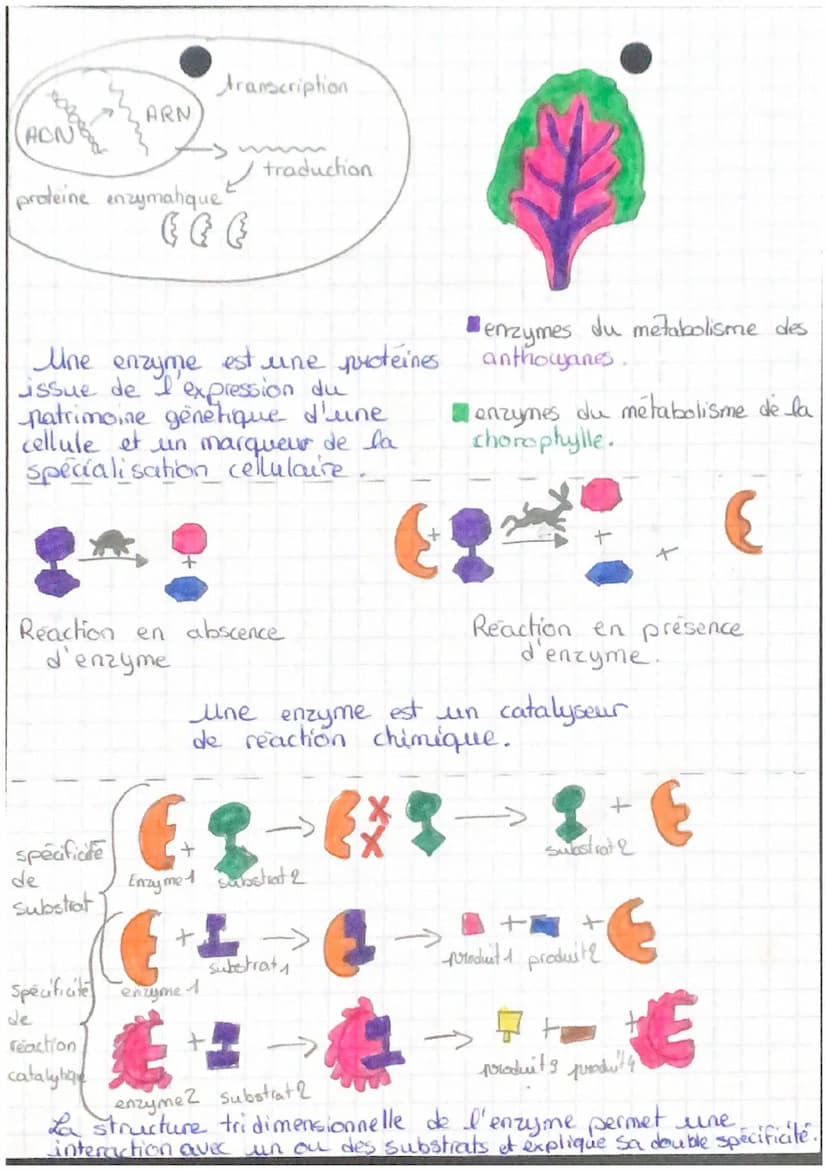 transcription
ADN
ARN
traduction
proteine enzymatique
Une enzyme est une protéines
issue de l'expression du
patrimoine génétique d'une
cellule et un marqueur de la
spécialisation cellulaire.
enzymes du métabolisme des
anthocyanes.
enzymes du métabolisme de la
chorophylle.
+
+
+
+
Réaction en abscence
d'enzyme
Réaction en présence
d'enzyme.
Une enzyme est un catalyseur
de réaction chimique.
spécificité
de
substrat
+
Enzyme 1
substrat 2
+
substrat 2
+
enzyme 1
substrat 1
+
+
produit 1
produit 2
Spécificité
de
réaction
catalytique
+
enzyme 2
substrat 2
+
+
produit 3
produit 4
La structure tridimensionnelle de l'enzyme permet une
interaction avec un ou des substrats et explique sa double spécificité.